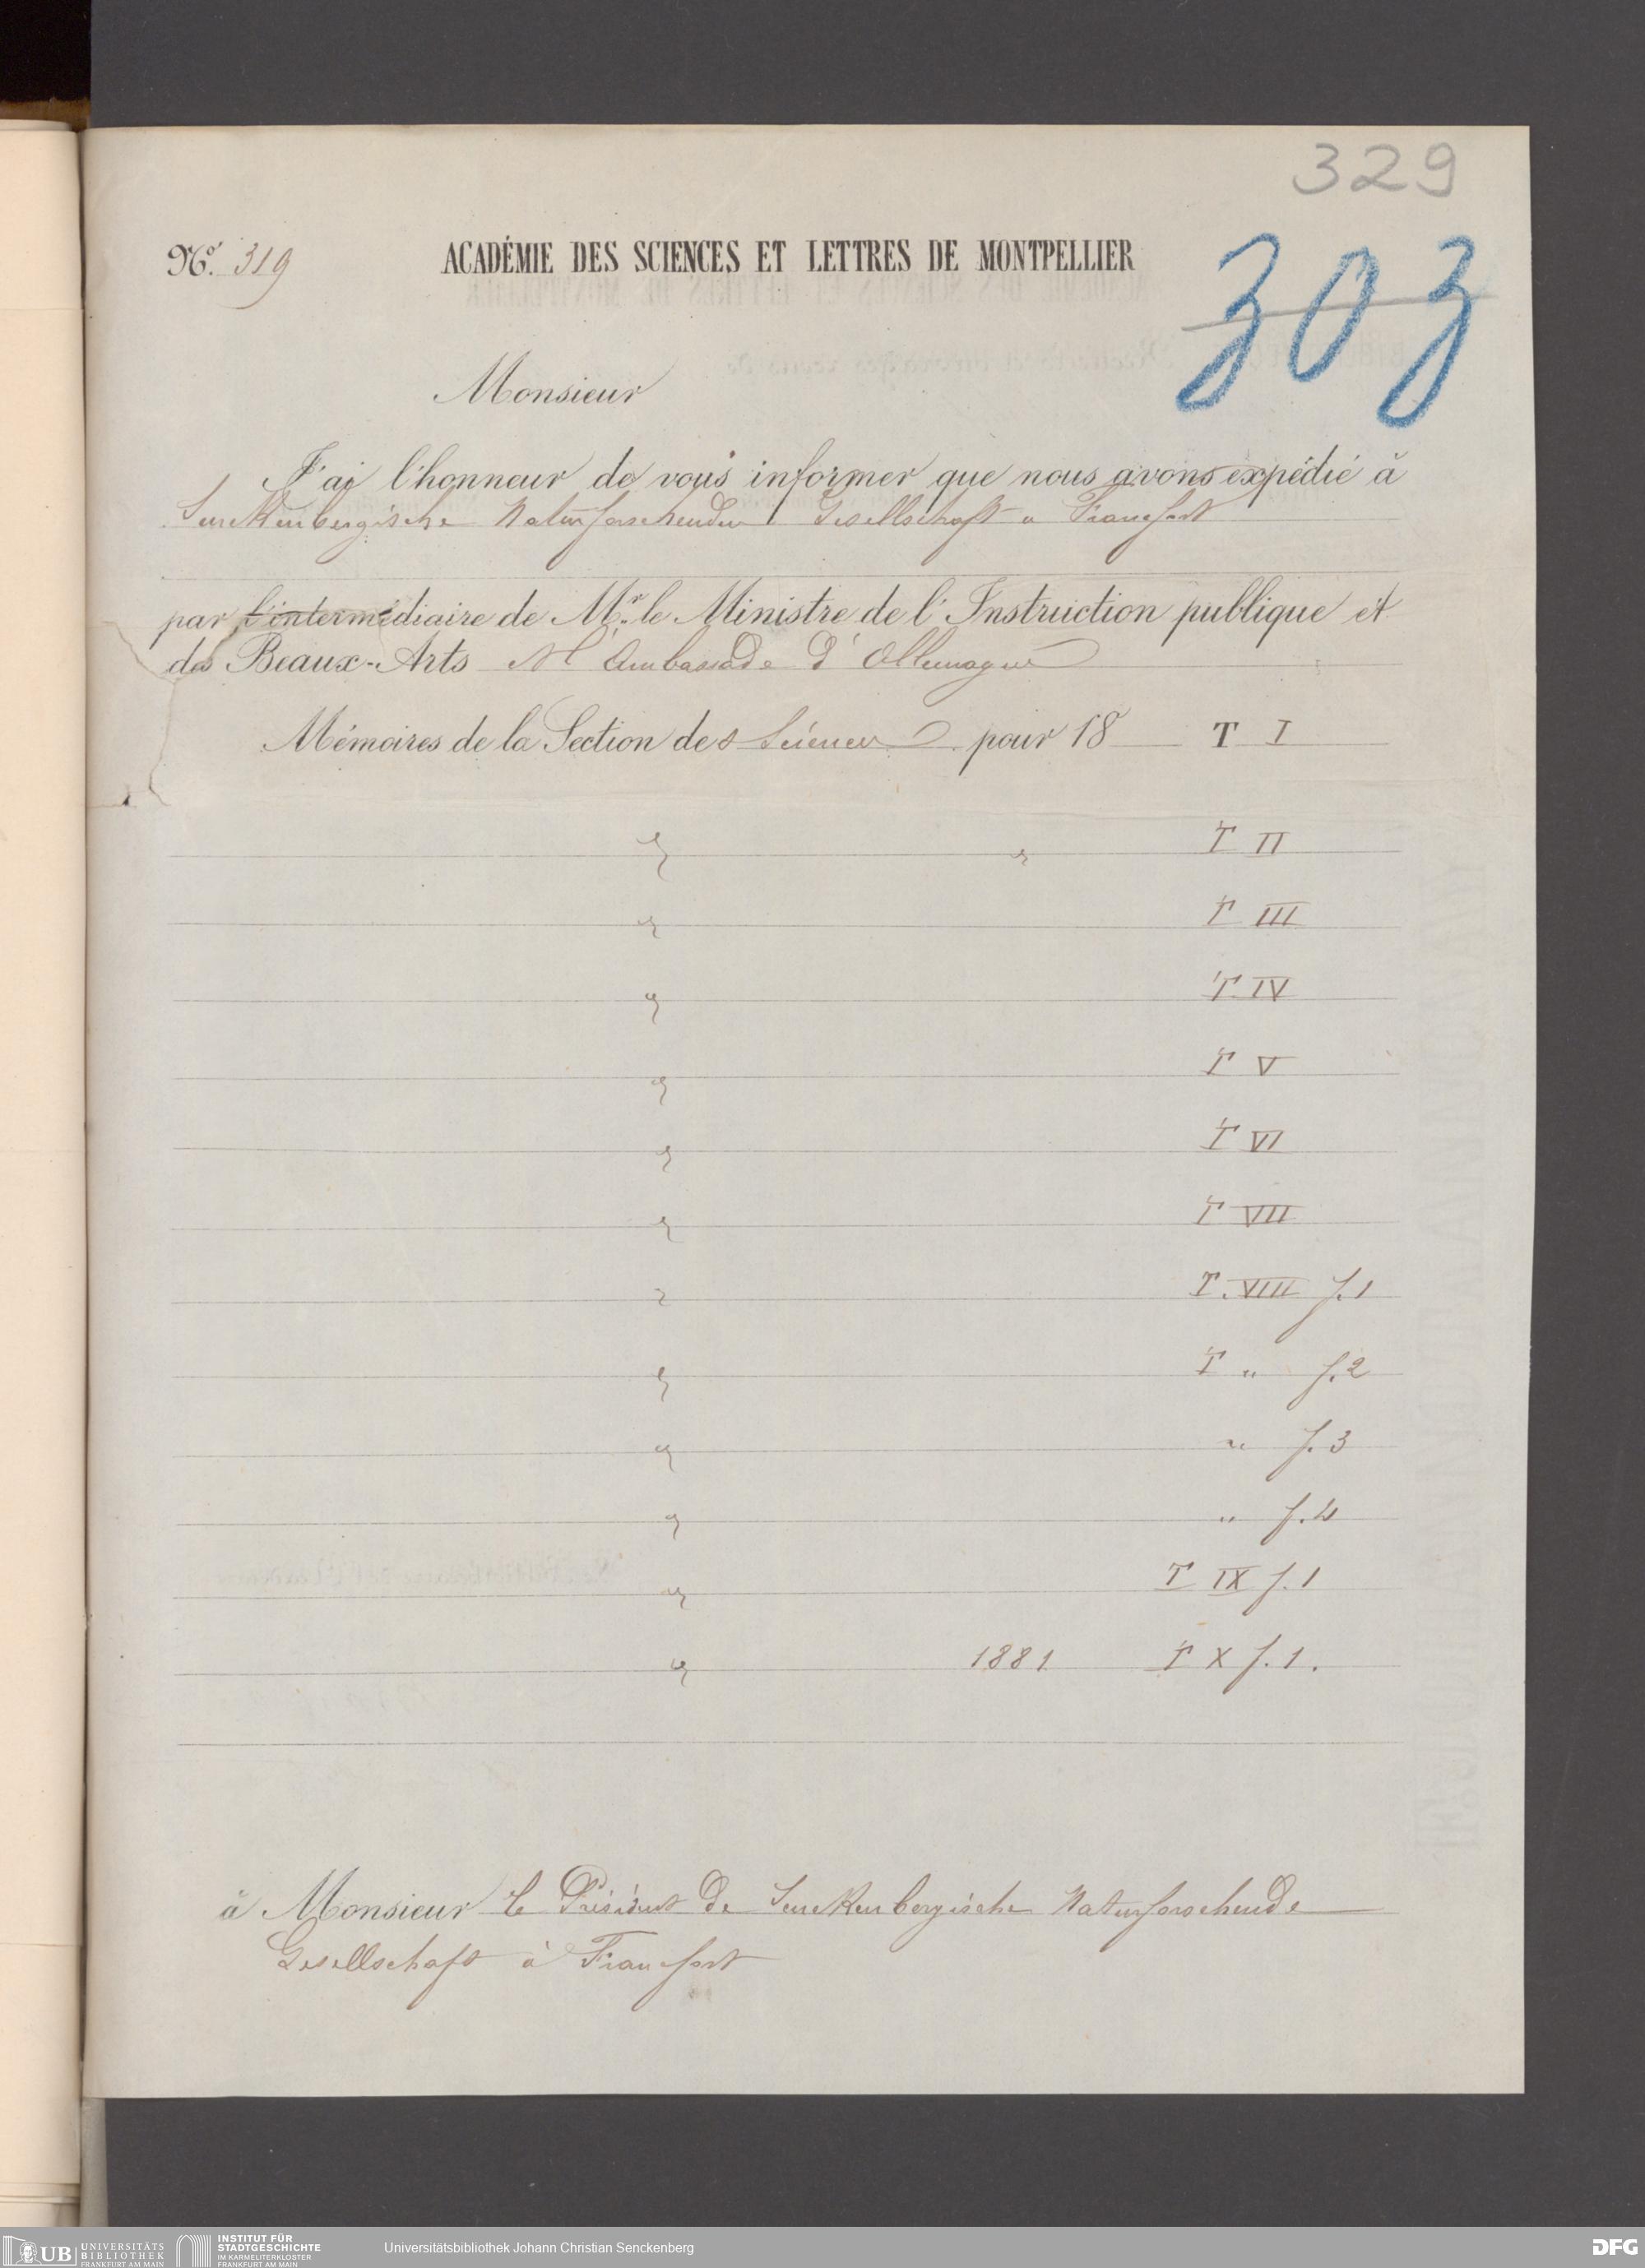 329
Nº 319
ACADÉMIE DES SCIENCES ET LETTRES DE MONTPELLIER
303
Monsieur
J'ai l'honneur de vous informer que nous avons expédié à
Senckenbergische Naturforschenden Gesellschaft a Francfort
par l'intermédiaire de Mr. le Ministre de l'Instruction publique et
des Beaux-Arts Ambassade d'Allemagne
Mémoires de la Section des Sciences pour 18 T I
" " T II
" T III
" T IV
" T V
" T VI
" T VII
" T. VIII f. 1
" T " f. 2
" " f. 3
" " f. 4
" T IX f. 1
" 1881 T X f. 1.
à Monsieur le Président de Senckenbergische Naturforschende
Gesellschaft à Francfort
UB UNIVERSITÄTS
BIBLIOTHEK
FRANKFURT AM MAIN
INSTITUT FÜR
STADTGESCHICHTE
IM KARMELITERKLOSTER
FRANKFURT AM MAIN
Universitätsbibliothek Johann Christian Senckenberg
DFG